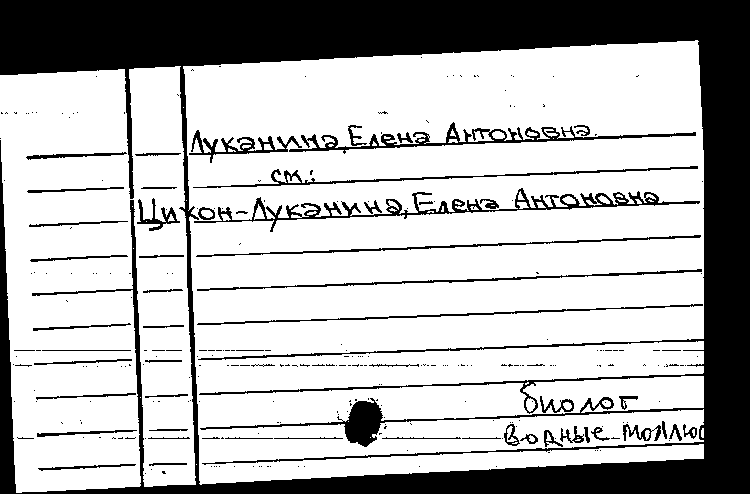 Луканина, Елена Антоновна.
см.:
Цихон-Луканина, Елена Антоновна.
биолог
водные моллюс